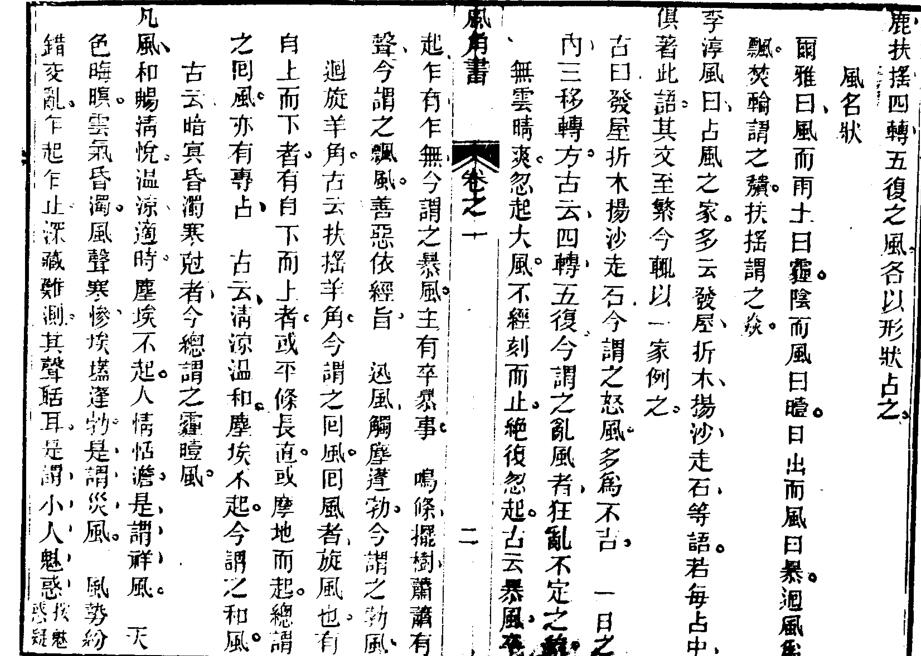 鹿扶搖四轉五復之風各以形狀占之
風名狀
爾雅曰風而雨土曰霾陰而風曰曀日出而風曰暴迴風為
飄焚輪謂之穨扶搖謂之猋
李淳風曰占風之家多云發屋折木揚沙走石等語若每占中
俱著此語其文至繁今輒以一家例之
古曰發屋折木揚沙走石今謂之怒風多為不吉 一日之
內三移轉方古云四轉五復今謂之亂風者狂亂不定之
無雲晴爽忽起大風不經刻而止絕復忽起古云暴風卒
風角書 卷之一 二
起乍有乍無今謂之暴風主有卒暴事 鳴條擺樹蕭蕭有
聲今謂之飄風善惡依經旨 迅風觸塵蓬勃今謂之勃風
迴旋羊角古云扶搖羊角今謂之回風回風者旋風也有
自上而下者有自下而上者或平條長直或摩地而起總謂
之回風亦有專占 古云清涼温和塵埃不起今謂之和風
古云暗㝠昏濁寒尅者今總謂之霾曀風
凡風和暢清悅温涼適時塵埃不起人情恬澹是謂祥風 天
色晦暝雲氣昏濁風聲寒慘埃壒蓬勃是謂災風 風勢紛
錯交亂乍起乍止深藏難測其聲聒耳是謂小人魅惑 按魅惑疑